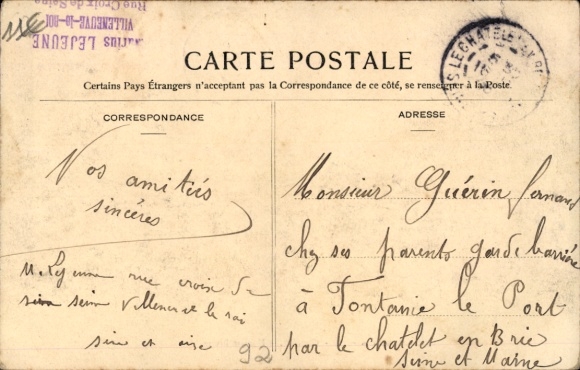 11€
Marius LEJEUNE
VILLENEUVE-le-ROI
Rue Croix de Seine
CARTE POSTALE
Certains Pays Étrangers n'acceptant pas la Correspondance de ce côté, se renseigner à la Poste.
CORRESPONDANCE
Vos amitiés
sincères
M. Lejeune rue croix de
sein seine Villeneuve le roi
sine et oise
92
ADRESSE
Monsieur Guérin fernand
chez ses parents garde barrière
à Fontaine le Port
par le chatelet en Brie
Seine et Marne
LE CHATELET-EN-BRIE